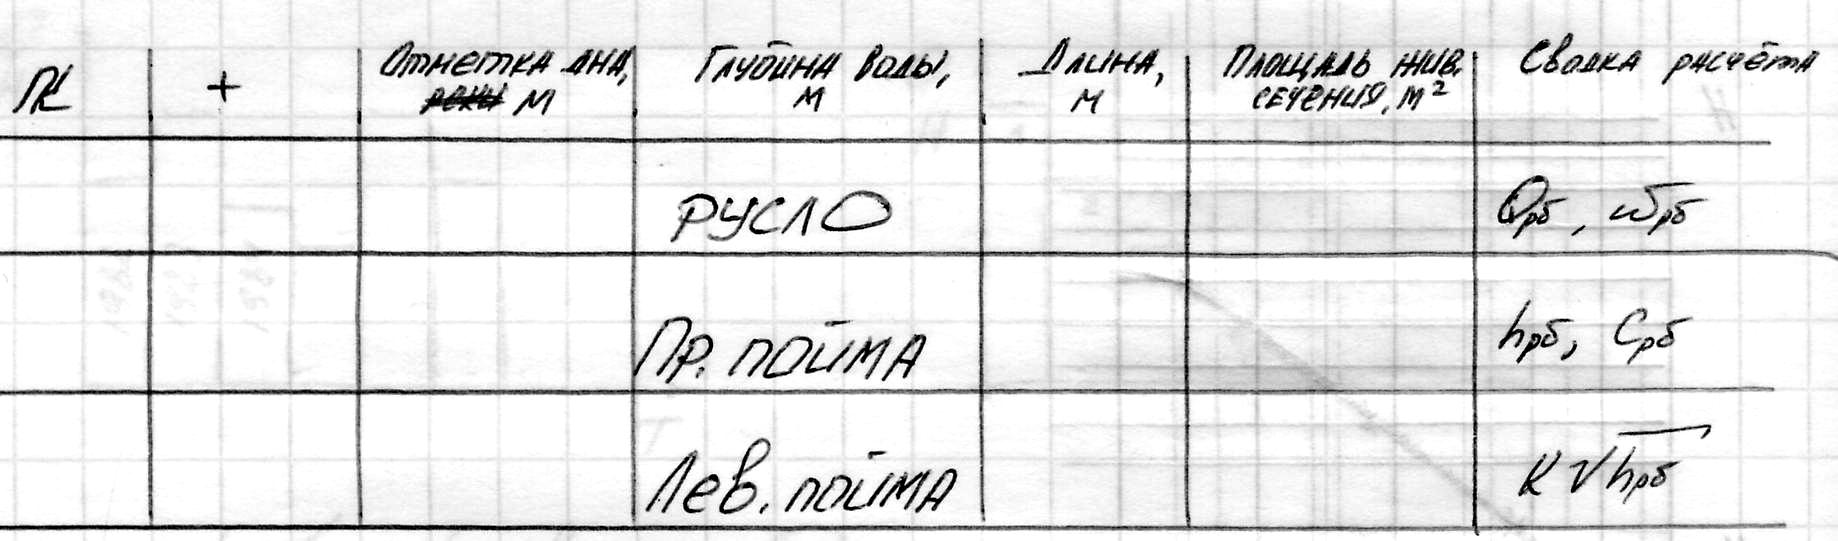 ПК + Отметка дна, м Глубина воды, м Длина, м Площадь жив. сечения, м² Сводка расчёта
РУСЛО Qрб, ωрб
Пр. пойма hрб, Cрб
Лев. пойма K√hрб